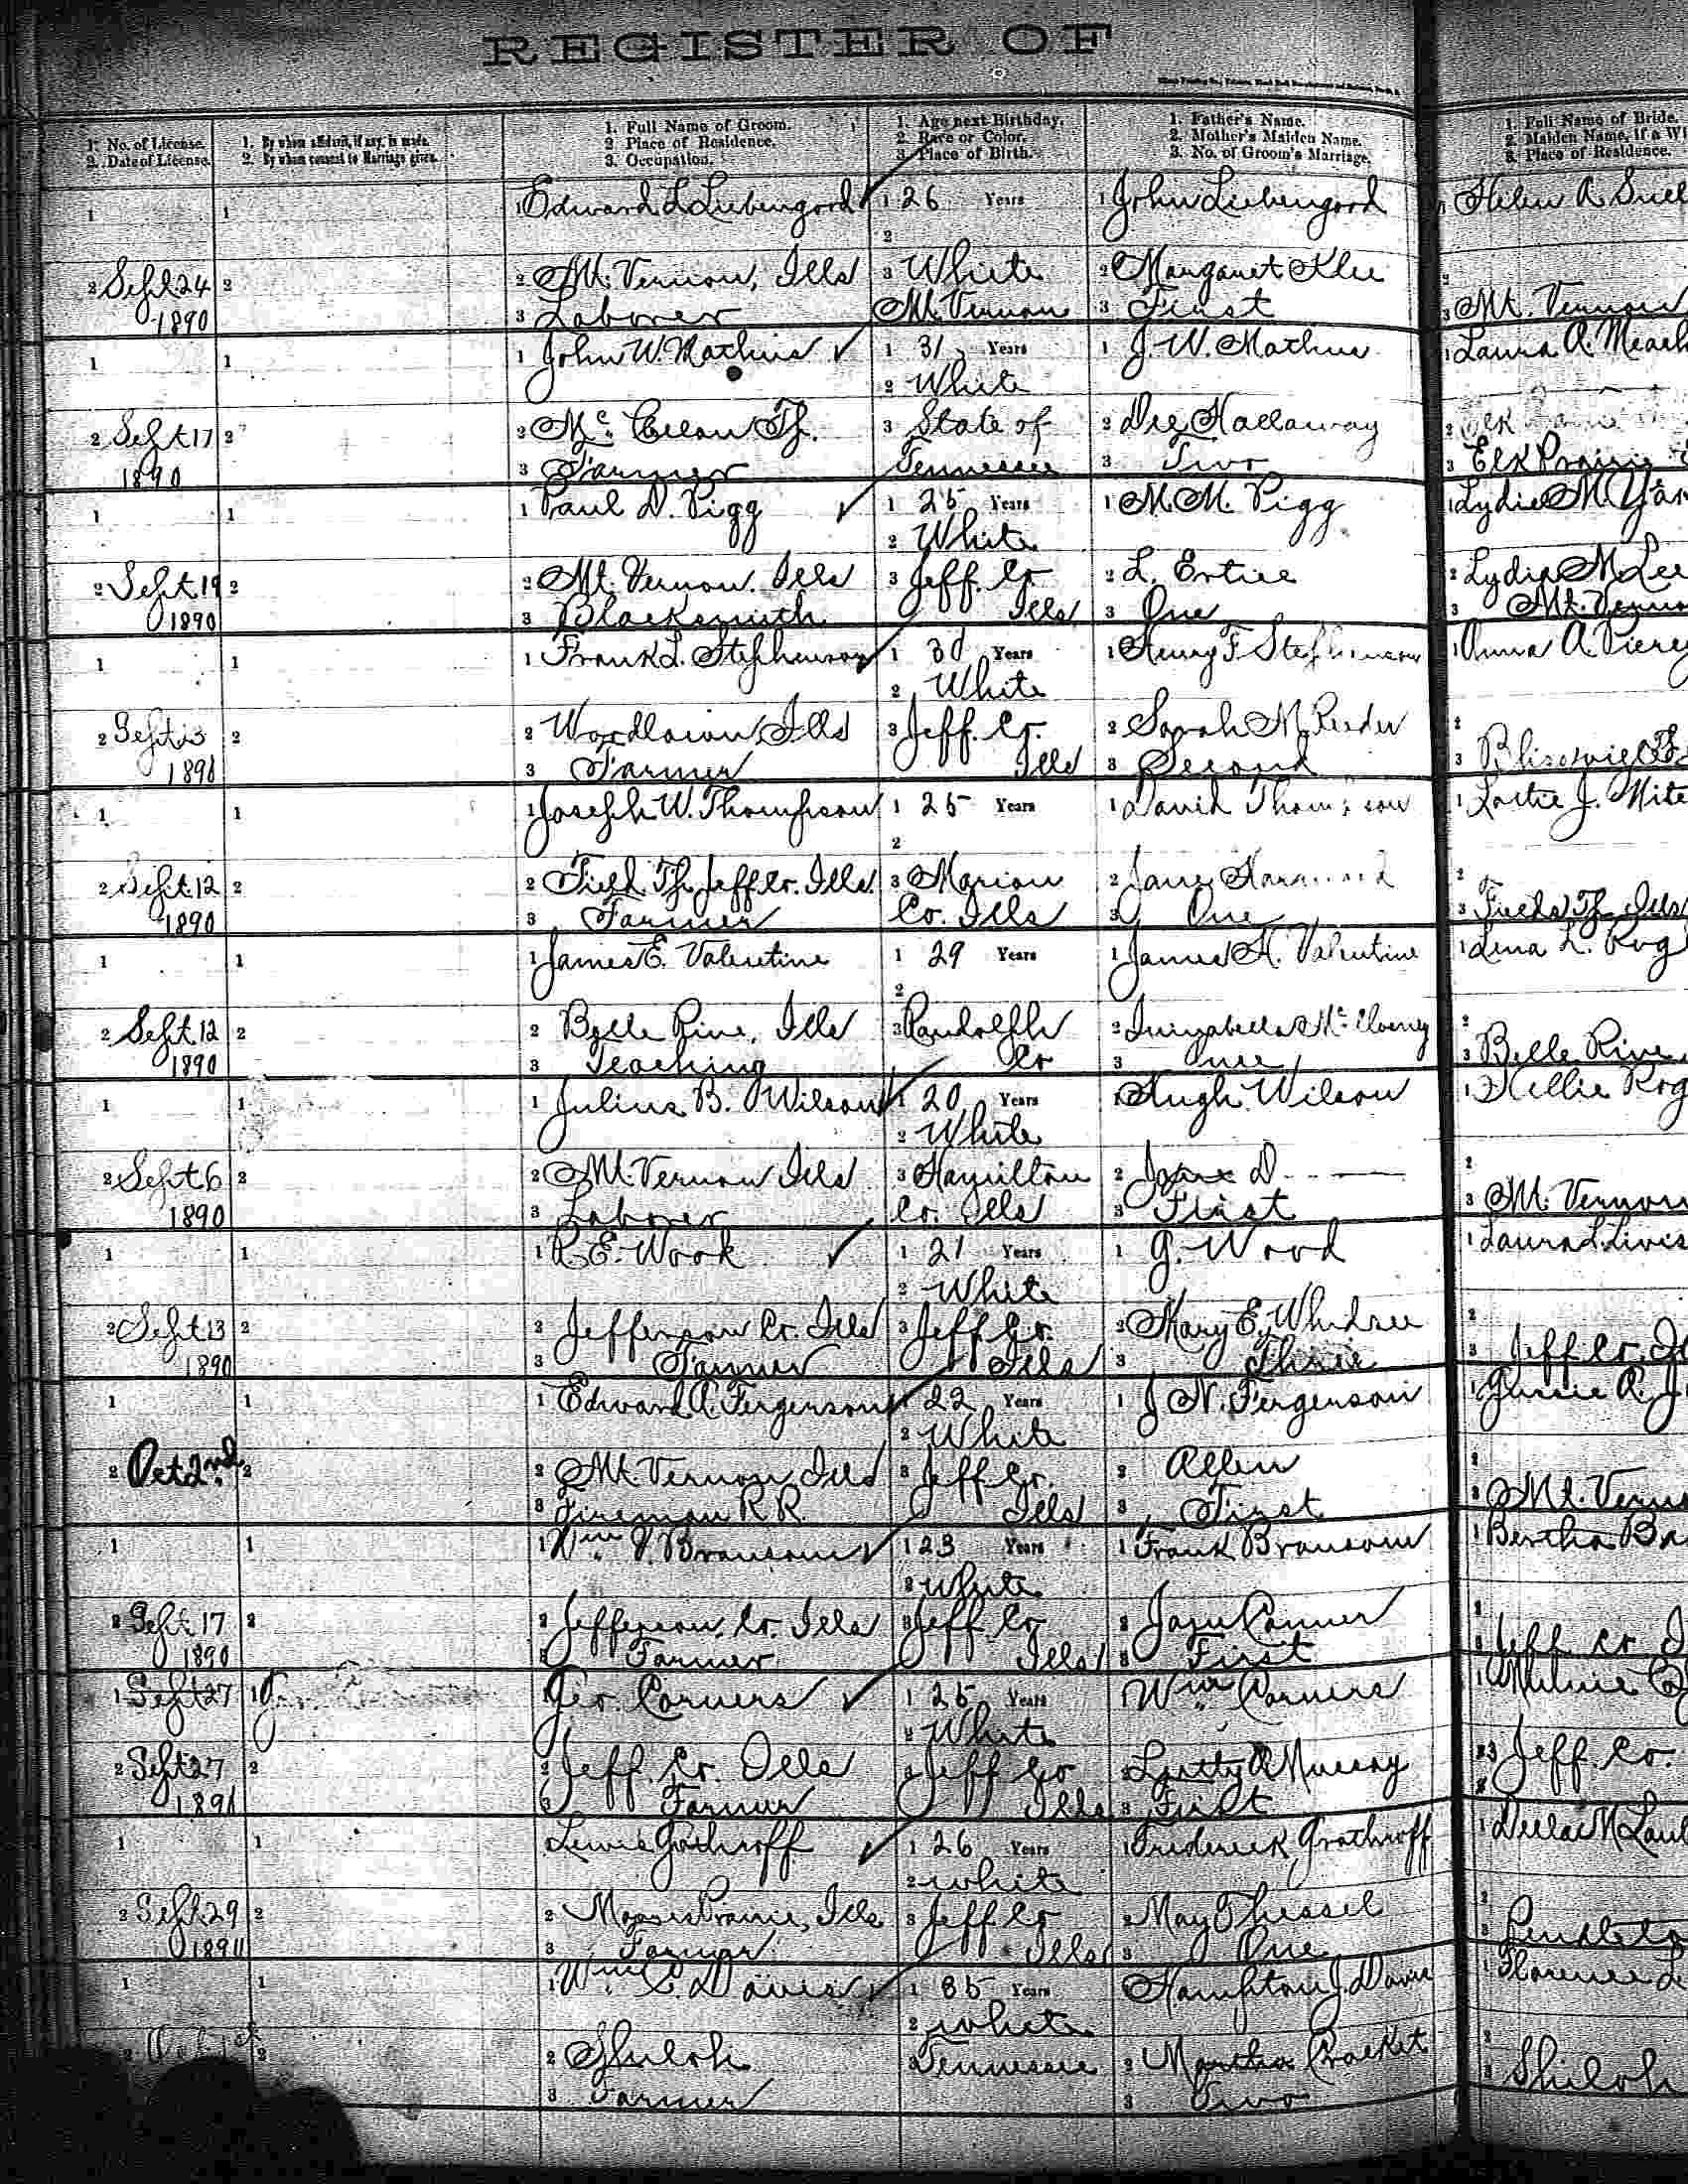 REGISTER OF
1. No. of License.
2. Date of License.
1. By whom affidavit, if any, is made.
2. By whom consent to Marriage given.
1. Full Name of Groom.
2. Place of Residence.
3. Occupation.
1. Age next Birthday.
2. Race or Color.
3. Place of Birth.
1. Father's Name.
2. Mother's Maiden Name.
3. No. of Groom's Marriage.
1. Full Name of Bride.
2. Maiden Name, if a Wi
3. Place of Residence.
1 1 1 Edward L Liebengood 1 26 Years 1 John Liebengood 1 Helen A Snel
2
2 Sept 24 2 2 Mt. Vernon, Ills 3 White 2 Margaret Klee 2
1890 3 Laborer Mt. Vernon 3 First 3 Mt. Vernon
1 1 1 John W. Mathus 1 31 Years 1 J. W. Mathus 1 Laura A. Meach
2 White
2 Sept 17 2 2 Mc Cllan Tp. 3 State of 2 Dee Hallaway 2
1890 3 Farmer Tennessee 3 Two 3 Elk Prairie
1 1 1 Paul D. Pigg 1 25 Years 1 M. M. Pigg 1 Lydia M. Yar
2 White
2 Sept 19 2 2 Mt. Vernon. Ills 3 Jeff. Co 2 L. Entice 2 Lydia M Lee
1890 3 Blacksmith Ills 3 One 3 Mt. Verno
1 1 1 Frank L. Stephenson 1 30 Years 1 Henry F Stephenson 1 Anna A Pierc
2 White
2 Sept 13 2 2 Woodlawn, Ills 3 Jeff. Co. 2 Sarah M. Reeder 2
1890 3 Farmer Ills 3 Second 3
1 1 1 Joseph W. Thompson 1 25 Years 1 David Thompson 1 J. Mite
2
2 Sept 12 2 2 Field Tp. Jeff Co. Ills. 3 Marion 2 Jane 2
1890 3 Farmer Co. Ills 3 One 3 Fields Tp Ills
1 1 1 James E. Valentine 1 29 Years 1 James H. Valentine 1 Lena L. Rog
2
2 Sept 12 2 2 Belle Rive, Ills 3 Randolph 2 2
1890 3 Teaching Co 3 One 3 Belle Rive
1 1 1 Julius B. Wilson 1 20 Years 1 Hugh Wilson 1 Nellie Rog
2 White
2 Sept 6 2 2 Mt. Vernon Ills 3 Hamilton 2 Jane D. 2
1890 3 Laborer Co. Ills 3 First 3 Mt. Vernon
1 1 1 R. E. Wook 1 21 Years 1 G. Wood 1 Laura L. Lives
2 White
2 Sept 13 2 2 Jefferson Co. Ills 3 Jeff Co. 2 Mary E. 2
1890 3 Farmer Ills 3 Three 3 Jeff Co.
1 1 1 Edward A. Fergerson 1 22 Years 1 J N. Fergerson 1
2 White
2 Oct 2nd. 2 2 Mt. Vernon, Ills 3 Jeff Co. 2 Allen 2
3 Fireman R R. Ills 3 First 3 Mt. Verno
1 1 1 Wm. V. Branson 1 23 Years 1 Frank Bransom 1 Bertha Ba
2 White
2 Sept 17 2 2 Jefferson Co. Ills 3 Jeff Co 2 Jane Conner 2
1890 3 Farmer Ills 3 First 3 Jeff Co
1 Sept 27 1 1 Geo. Carvers 1 25 Years 1 Wm Carvers 1
2 White
2 Sept 27 2 2 Jeff. Co. Ills 3 Jeff Co 2 A Murray 2 3 Jeff. Co.
1890 3 Farmer Ills 3 First
1 1 Lewis Gothroff 1 26 Years 1 Frederick Grathroff 1 Della M Lau
2 White
2 Sept 29 2 2 Moores Prairie, Ills 3 Jeff Co 2 May Thessel 2
1890 3 Farmer Ills 3 One 3 Pendleto
1 1 1 Wm. C. Davis 1 35 Years Hampton J. Davis 1 Florence
2 White
2 2 2 Shiloh 3 Tennessee 2 Martha Crocket 2
3 Farmer 3 Two 3 Shiloh